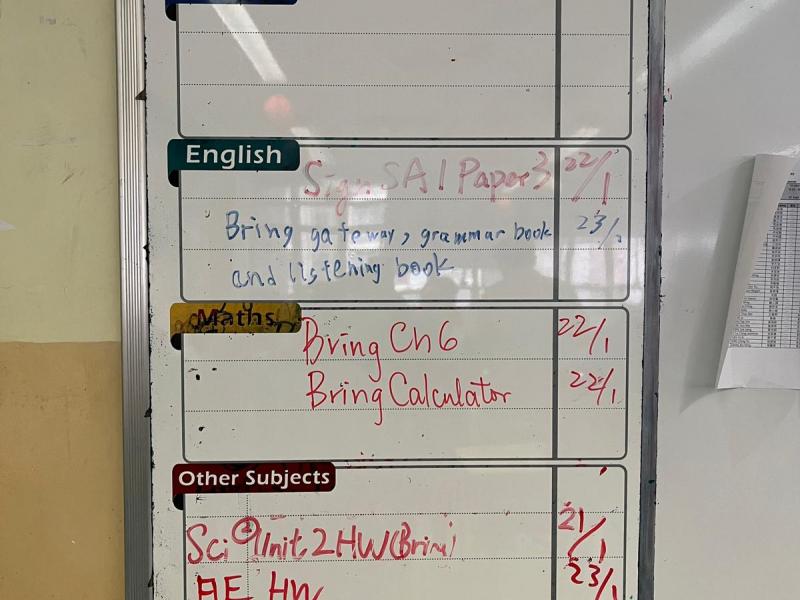 English
Sign SA1 Paper 3 22/1
Bring gateway, grammar book 23/1
and listening book
Maths
Bring Ch 6 22/1
Bring Calculator 22/1
Other Subjects
Sci Unit 2 HW 21/1
HW 23/1